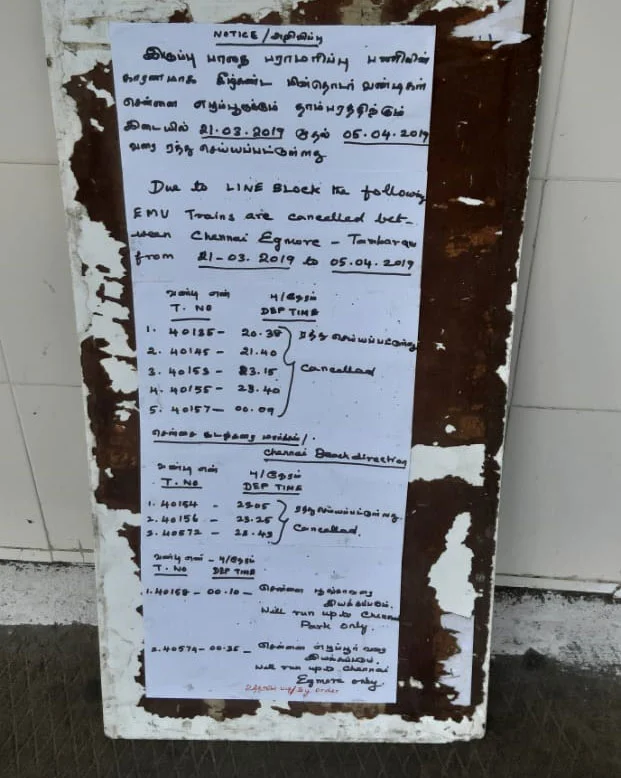 NOTICE / அறிவிப்பு
இருப்பு பாதை பராமரிப்பு பணியின்
காரணமாக கீழ்கண்ட மின்தொடர் வண்டிகள்
சென்னை எழும்பூருக்கும் தாம்பரத்திற்கும்
இடையில் 21.03.2019 முதல் 05.04.2019
வரை ரத்து செய்யப்பட்டுள்ளது
Due to LINE BLOCK the following
EMU Trains are cancelled bet-
ween Chennai Egmore - Tambaram
from 21-03.2019 to 05.04.2019
வண்டி எண் பு/நேரம்
T. NO DEP TIME
1. 40135- 20.38 ரத்து செய்யப்பட்டுள்ளது
2. 40145- 21.40
3. 40153- 23.15 Cancelled
4. 40155- 23.40
5. 40157- 00.09
சென்னை கடற்கரை மார்க்கம்/.
Chennai Beach direction
வண்டி எண் பு/நேரம்
T. NO DEP TIME
1. 40154 - 23.05 ரத்து செய்யப்பட்டுள்ளது
2. 40156 - 23.25 Cancelled.
3. 40572 - 23.45
வண்டி எண் - பு/நேரம்
T. NO DEP TIME
1. 40158 - 00.10 - சென்னை பூங்காவரை
இயக்கப்படும்.
Will run up to Chennai
Park only.
2. 40574-00.35 - சென்னை எழும்பூர் வரை
இயக்கப்படும்.
Will run up to Chennai
Egmore only.
by order